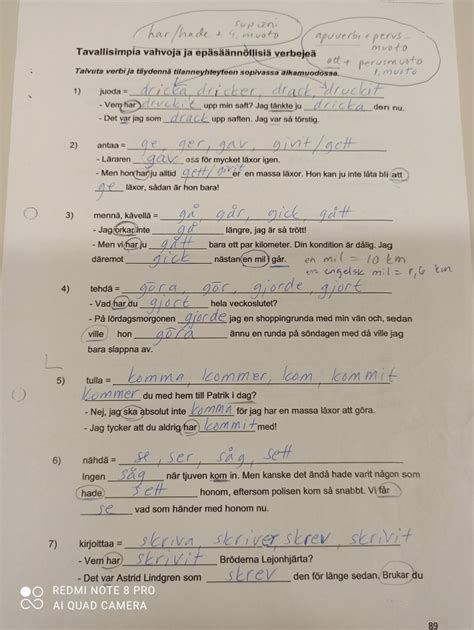 supiini
har/hade + 4. muoto
apuverbi + perus-
muoto
att + perusmuoto
1. muoto
Tavallisimpia vahvoja ja epäsäännöllisiä verbejeä
Taivuta verbi ja täydennä tilanneyhteyteen sopivassa aikamuodossa.
1) juoda = dricka, dricker, drack, druckit
- Vem har druckit upp min saft? Jag tänkte ju dricka den nu.
- Det var jag som drack upp saften. Jag var så törstig.
2) antaa = ge, ger, gav, givit/gett
- Läraren gav oss för mycket läxor igen.
- Men hon har ju alltid gett/givit er en massa läxor. Hon kan ju inte låta bli att
ge läxor, sådan är hon bara!
3) mennä, kävellä = gå, går, gick, gått
- Jag orkar inte gå längre, jag är så trött!
- Men vi har ju gått bara ett par kilometer. Din kondition är dålig. Jag
däremot gick nästan en mil i går. en mil = 10 km
en engelsk mil = 1,6 km
4) tehdä = göra, gör, gjorde, gjort
- Vad har du gjort hela veckoslutet?
- På lördagsmorgonen gjorde jag en shoppingrunda med min vän och, sedan
ville hon göra ännu en runda på söndagen med då ville jag
bara slappna av.
5) tulla = komma, kommer, kom, kommit
Kommer du med hem till Patrik i dag?
- Nej, jag ska absolut inte komma för jag har en massa läxor att göra.
- Jag tycker att du aldrig har kommit med!
6) nähdä = se, ser, såg, sett
Ingen såg när tjuven kom in. Men kanske det ändå hade varit någon som
hade sett honom, eftersom polisen kom så snabbt. Vi får
se vad som händer med honom nu.
7) kirjoittaa = skriva, skriver, skrev, skrivit
- Vem har skrivit Bröderna Lejonhjärta?
- Det var Astrid Lindgren som skrev den för länge sedan, Brukar du
REDMI NOTE 8 PRO
AI QUAD CAMERA
89